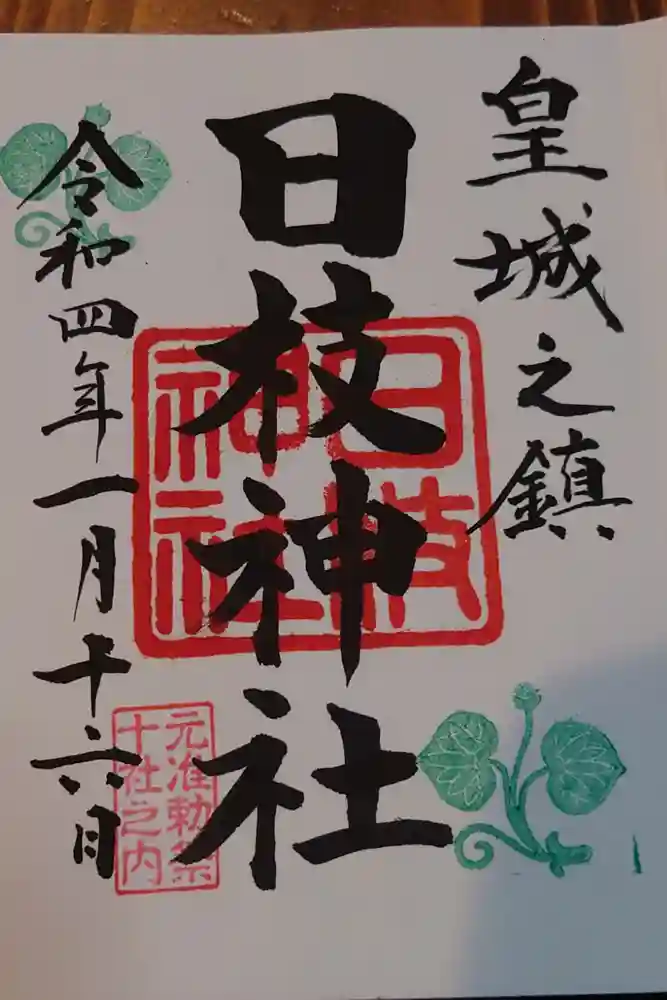 皇城之鎮
日枝神社
日枝
神社
令和四年一月十六日
元准勅祭
十社之内